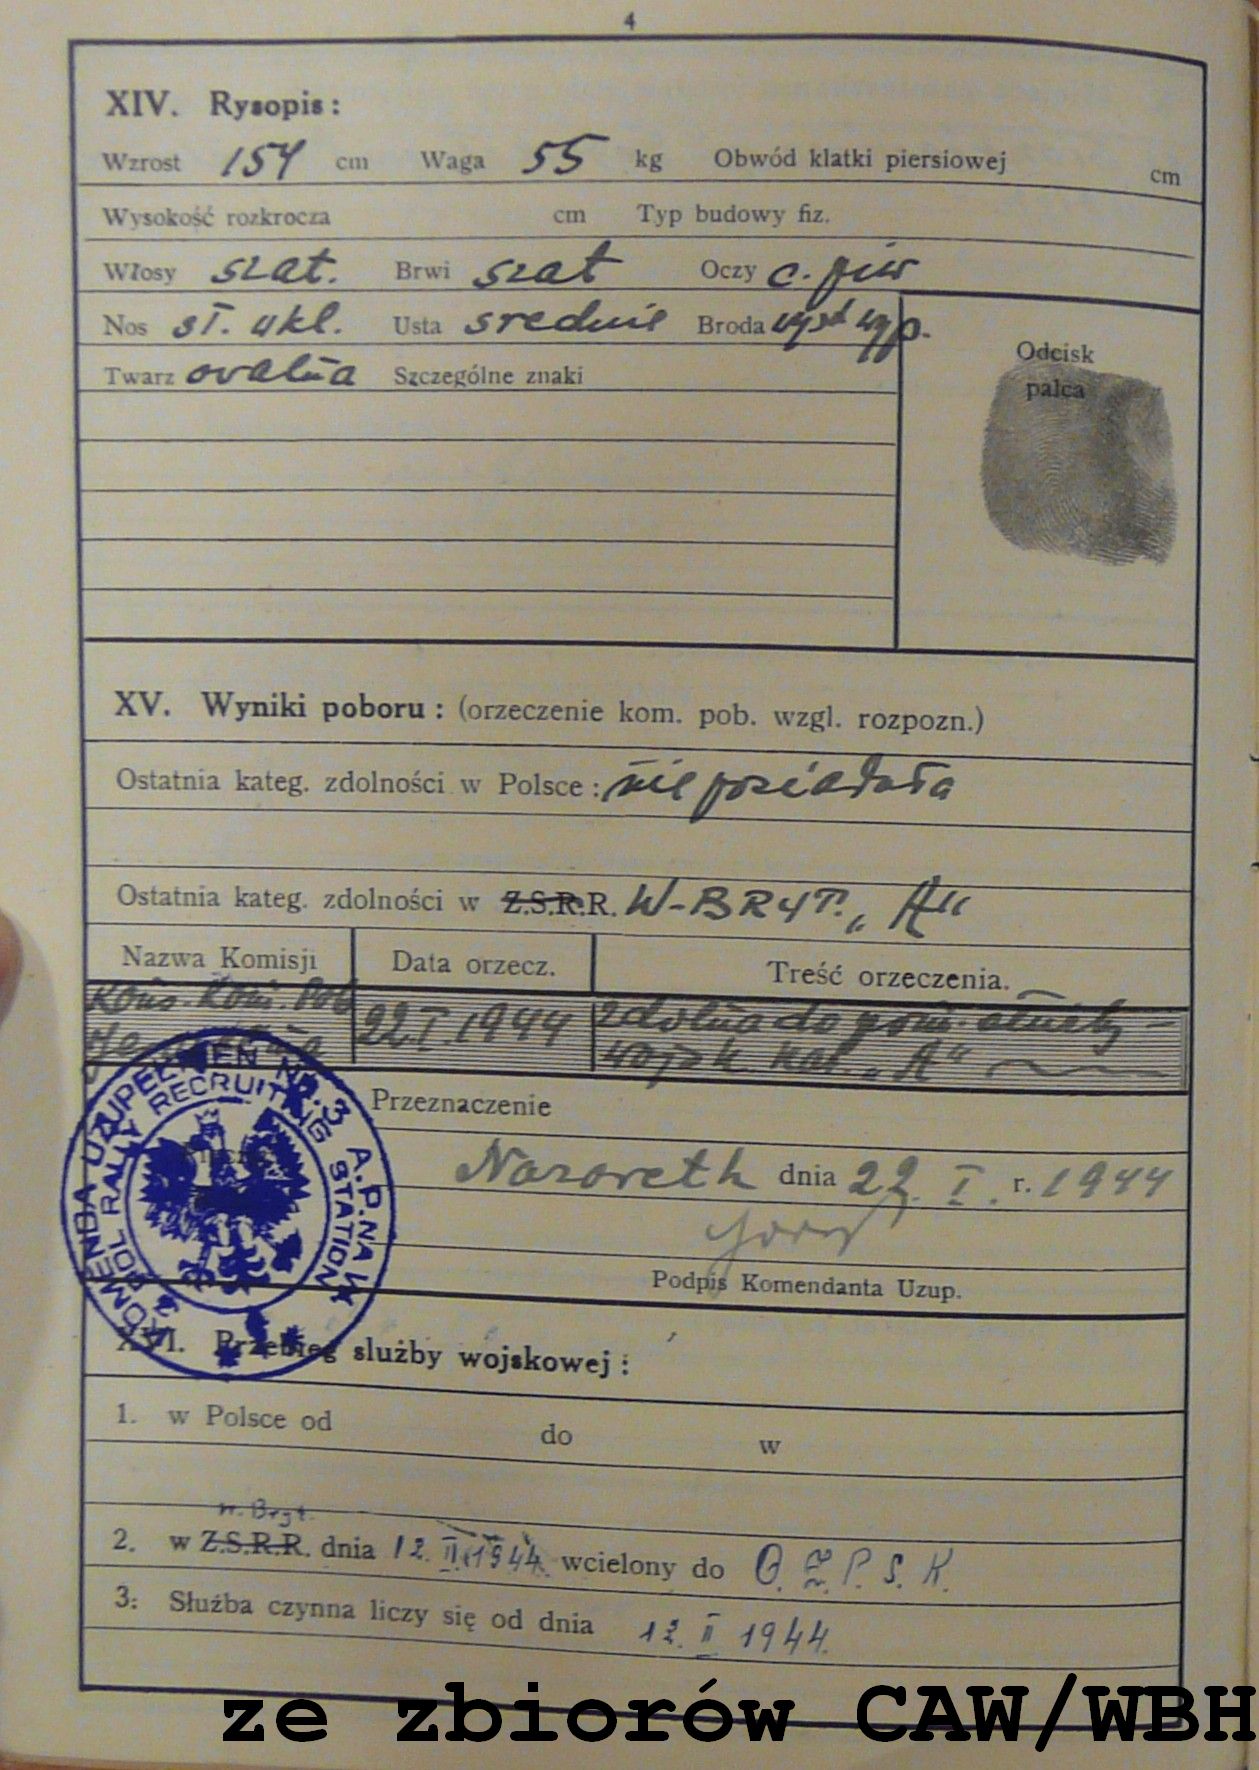 4
XIV. Rysopis:
Wzrost 154 cm Waga 55 kg Obwód klatki piersiowej cm
Wysokość rozkrocza cm Typ budowy fiz.
Włosy szat. Brwi szat Oczy c. piw
Nos śr. wkl. Usta średnie Broda
Twarz owalna Szczególne znaki
Odcisk
palca
XV. Wyniki poboru: (orzeczenie kom. pob. wzgl. rozpozn.)
Ostatnia kateg. zdolności w Polsce: nie posiadała
Ostatnia kateg. zdolności w Z.S.R.R. W-BRYT. „A"
Nazwa Komisji Data orzecz. Treść orzeczenia.
Kons. Kom. Pob 22.I.1944 zdolna do pom. służby
wojsk. kat. „A"
Przeznaczenie
Nazareth dnia 22. I. r. 1944
Podpis Komendanta Uzup.
KOMENDA UZUPEŁNIEŃ NR. 3 A.P. NA W
POL RALLY RECRUITING STATION
XVI. Przebieg służby wojskowej:
1. w Polsce od do w
w. Bryt.
2. w Z.S.R.R. dnia 12. II. 1944. wcielony do O. Z. P. S. K.
3. Służba czynna liczy się od dnia 12. II 1944.
ze zbiorów CAW/WBH